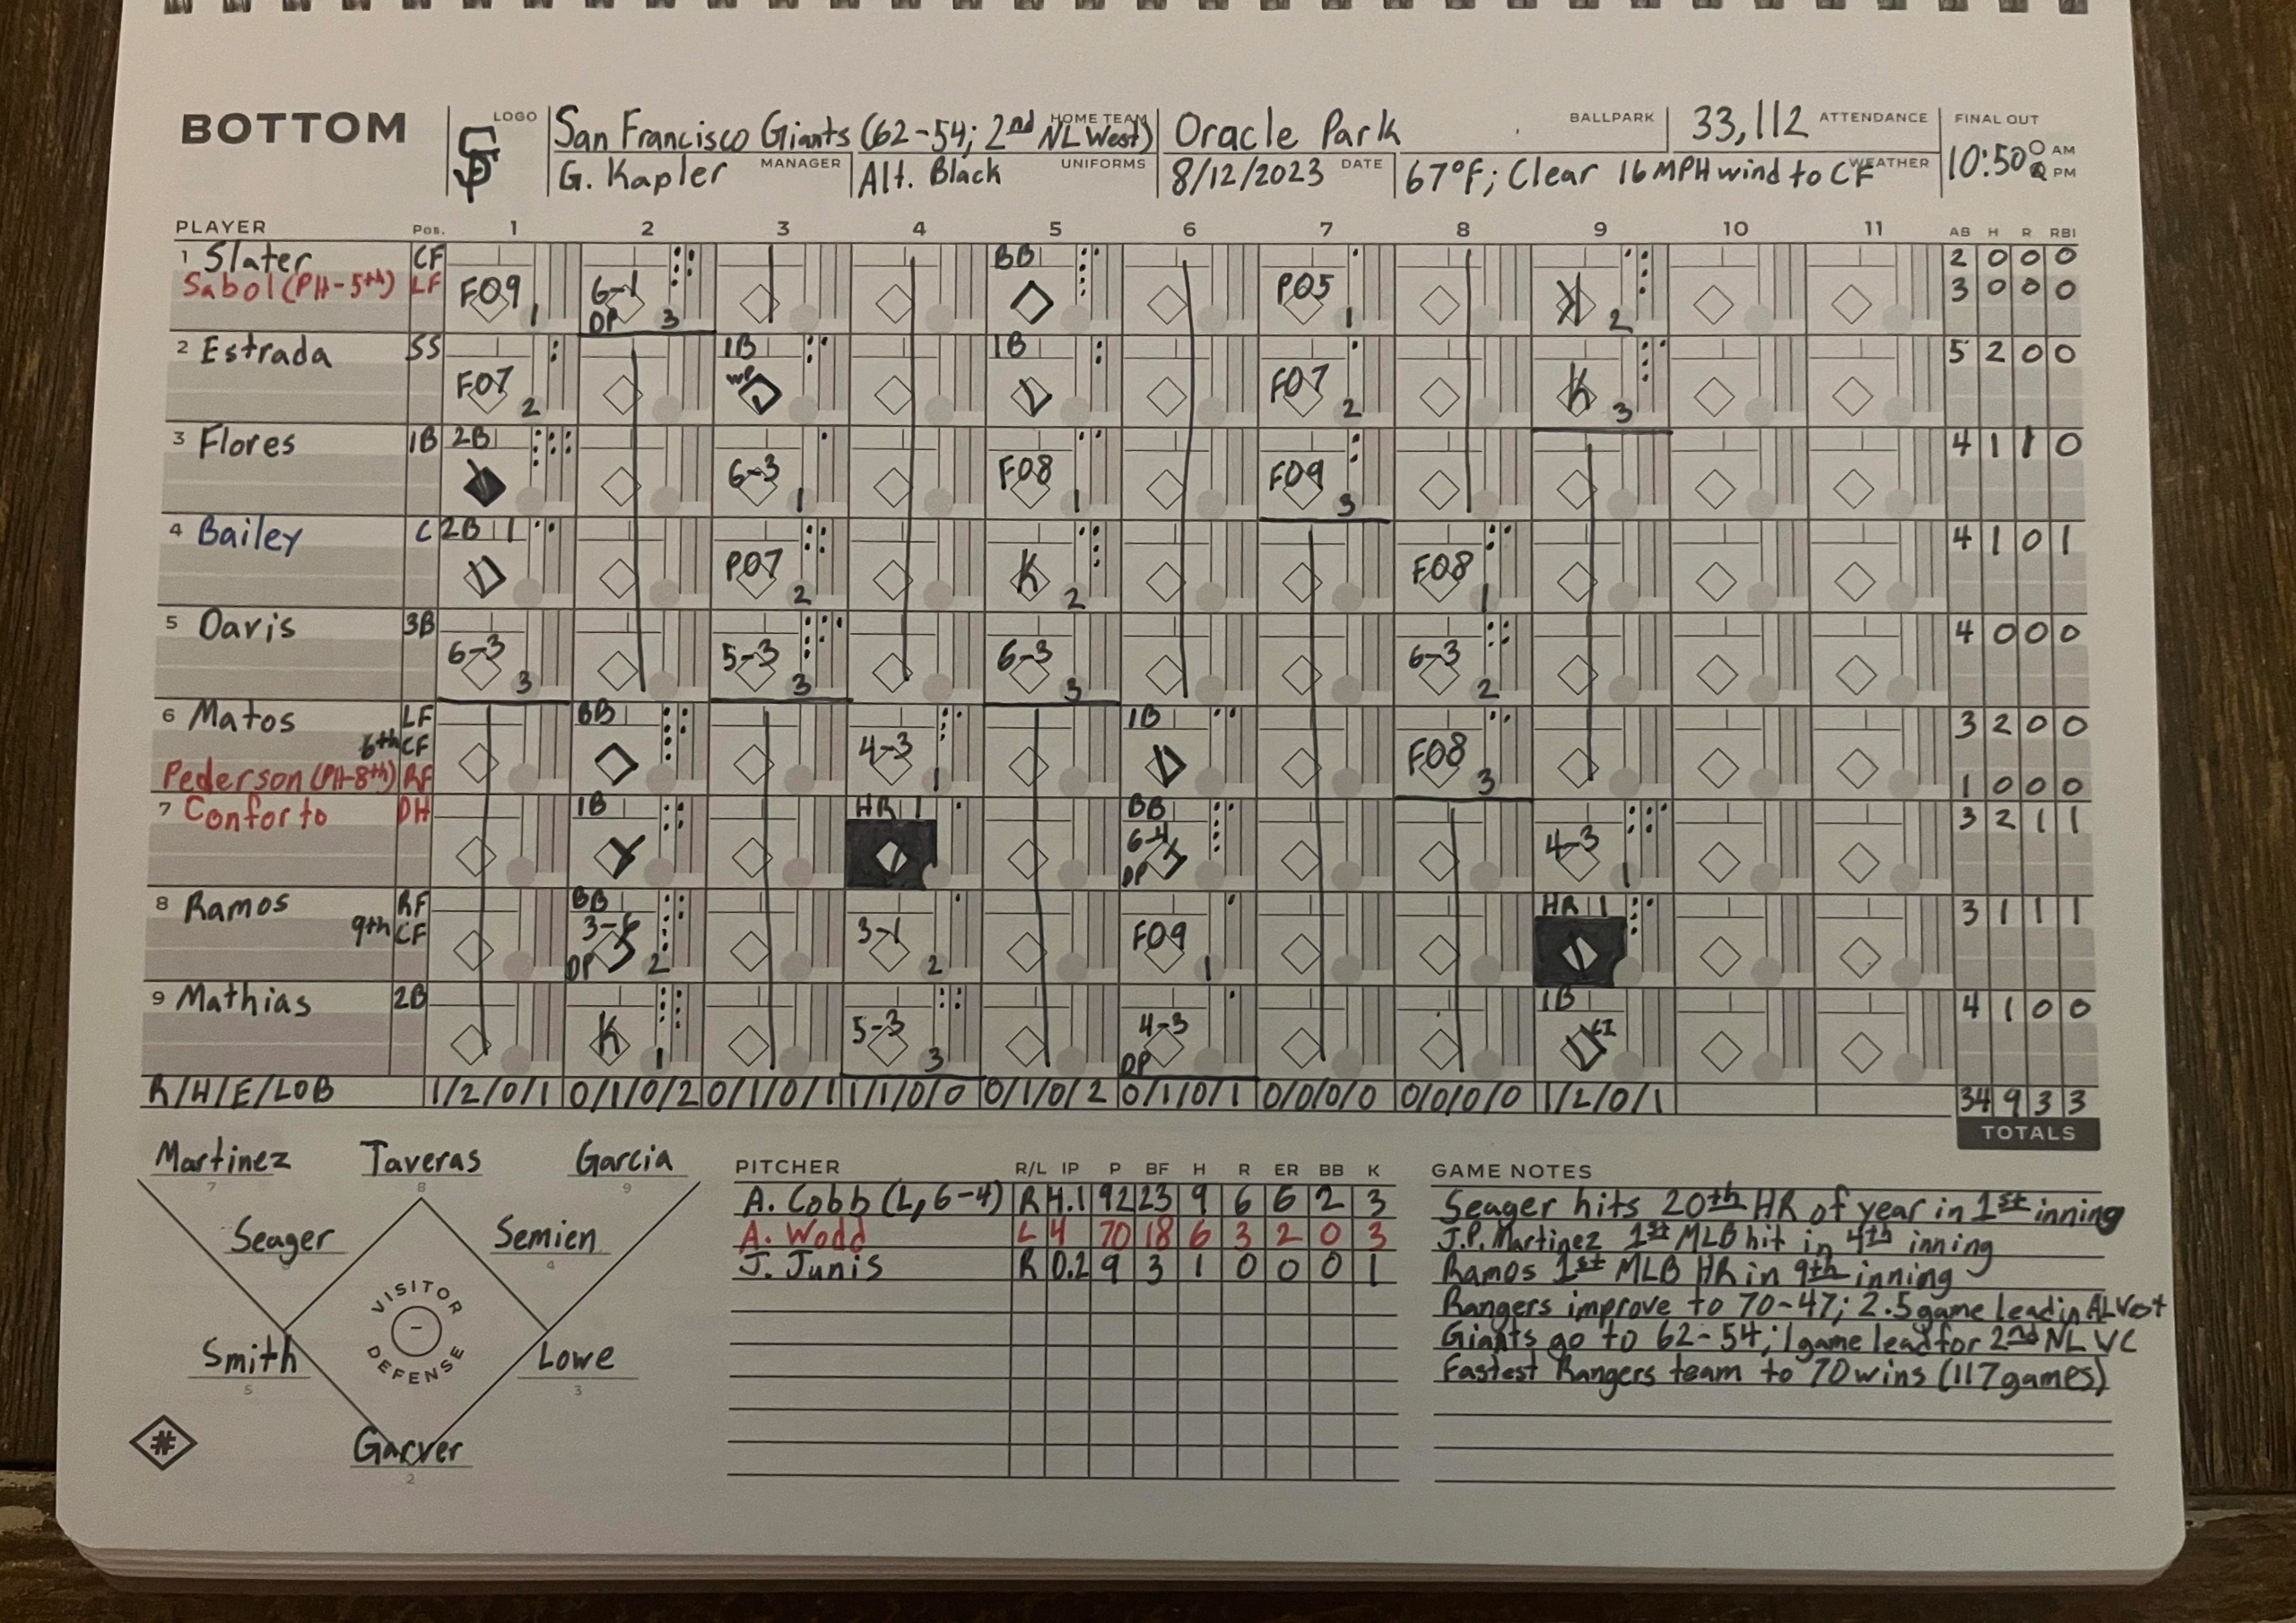 BOTTOM
LOGO SF San Francisco Giants (62-54; 2nd NL West) HOME TEAM Oracle Park BALLPARK 33,112 ATTENDANCE FINAL OUT
G. Kapler MANAGER Alt. Black UNIFORMS 8/12/2023 DATE 67°F; Clear 16 MPH wind to CF WEATHER 10:50 AM PM
PLAYER Pos. 1 2 3 4 5 6 7 8 9 10 11 AB H R RBI
1 Slater CF BB 2 0 0 0
Sabol (PH-5th) LF FO9 1 6-1 DP 3 PO5 1 K 2 3 0 0 0
2 Estrada SS 1B 1B 5 2 0 0
FO7 2 WP FO7 2 K 3
3 Flores 1B 2B 4 1 1 0
6-3 1 FO8 1 FO9 3
4 Bailey C 2B 1 4 1 0 1
PO7 2 K 2 FO8 1
5 Davis 3B 4 0 0 0
6-3 3 5-3 3 6-3 3 6-3 2
6 Matos LF BB 1B 3 2 0 0
6th CF 4-3 1 FO8 3
Pederson (PH-8th) RF 1 0 0 0
7 Conforto DH 1B HR 1 BB 3 2 1 1
6-4 DP 4-3 1
8 Ramos RF BB HR 1 3 1 1 1
9th CF 3-6 DP 2 3-1 2 FO9 1
9 Mathias 2B 1B 4 1 0 0
K 1 5-3 3 4-3 DP LI
R/H/E/LOB 1/2/0/1 0/1/0/2 0/1/0/1 1/1/0/0 0/1/0/2 0/1/0/1 0/0/0/0 0/0/0/0 1/2/0/1 34 9 3 3
TOTALS
Martinez 7 Taveras 8 Garcia 9
Seager Semien 4
VISITOR DEFENSE
Smith 5 Lowe 3
Garver 2
#
PITCHER R/L IP P BF H R ER BB K
A. Cobb (L, 6-4) R 4.1 92 23 9 6 6 2 3
A. Wodd L 4 70 18 6 3 2 0 3
J. Junis R 0.2 9 3 1 0 0 0 1
GAME NOTES
Seager hits 20th HR of year in 1st inning
J.P. Martinez 1st MLB hit in 4th inning
Ramos 1st MLB HR in 9th inning
Rangers improve to 70-47; 2.5 game lead in AL West
Giants go to 62-54; 1 game lead for 2nd NL WC
Fastest Rangers team to 70 wins (117 games)